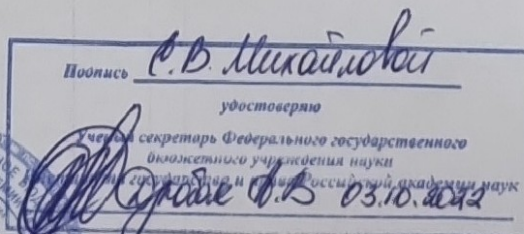 Подпись С.В. Михайловой
удостоверяю
Ученый секретарь Федерального государственного
бюджетного учреждения науки
государства и права Российской академии наук
В.В 03.10.2022